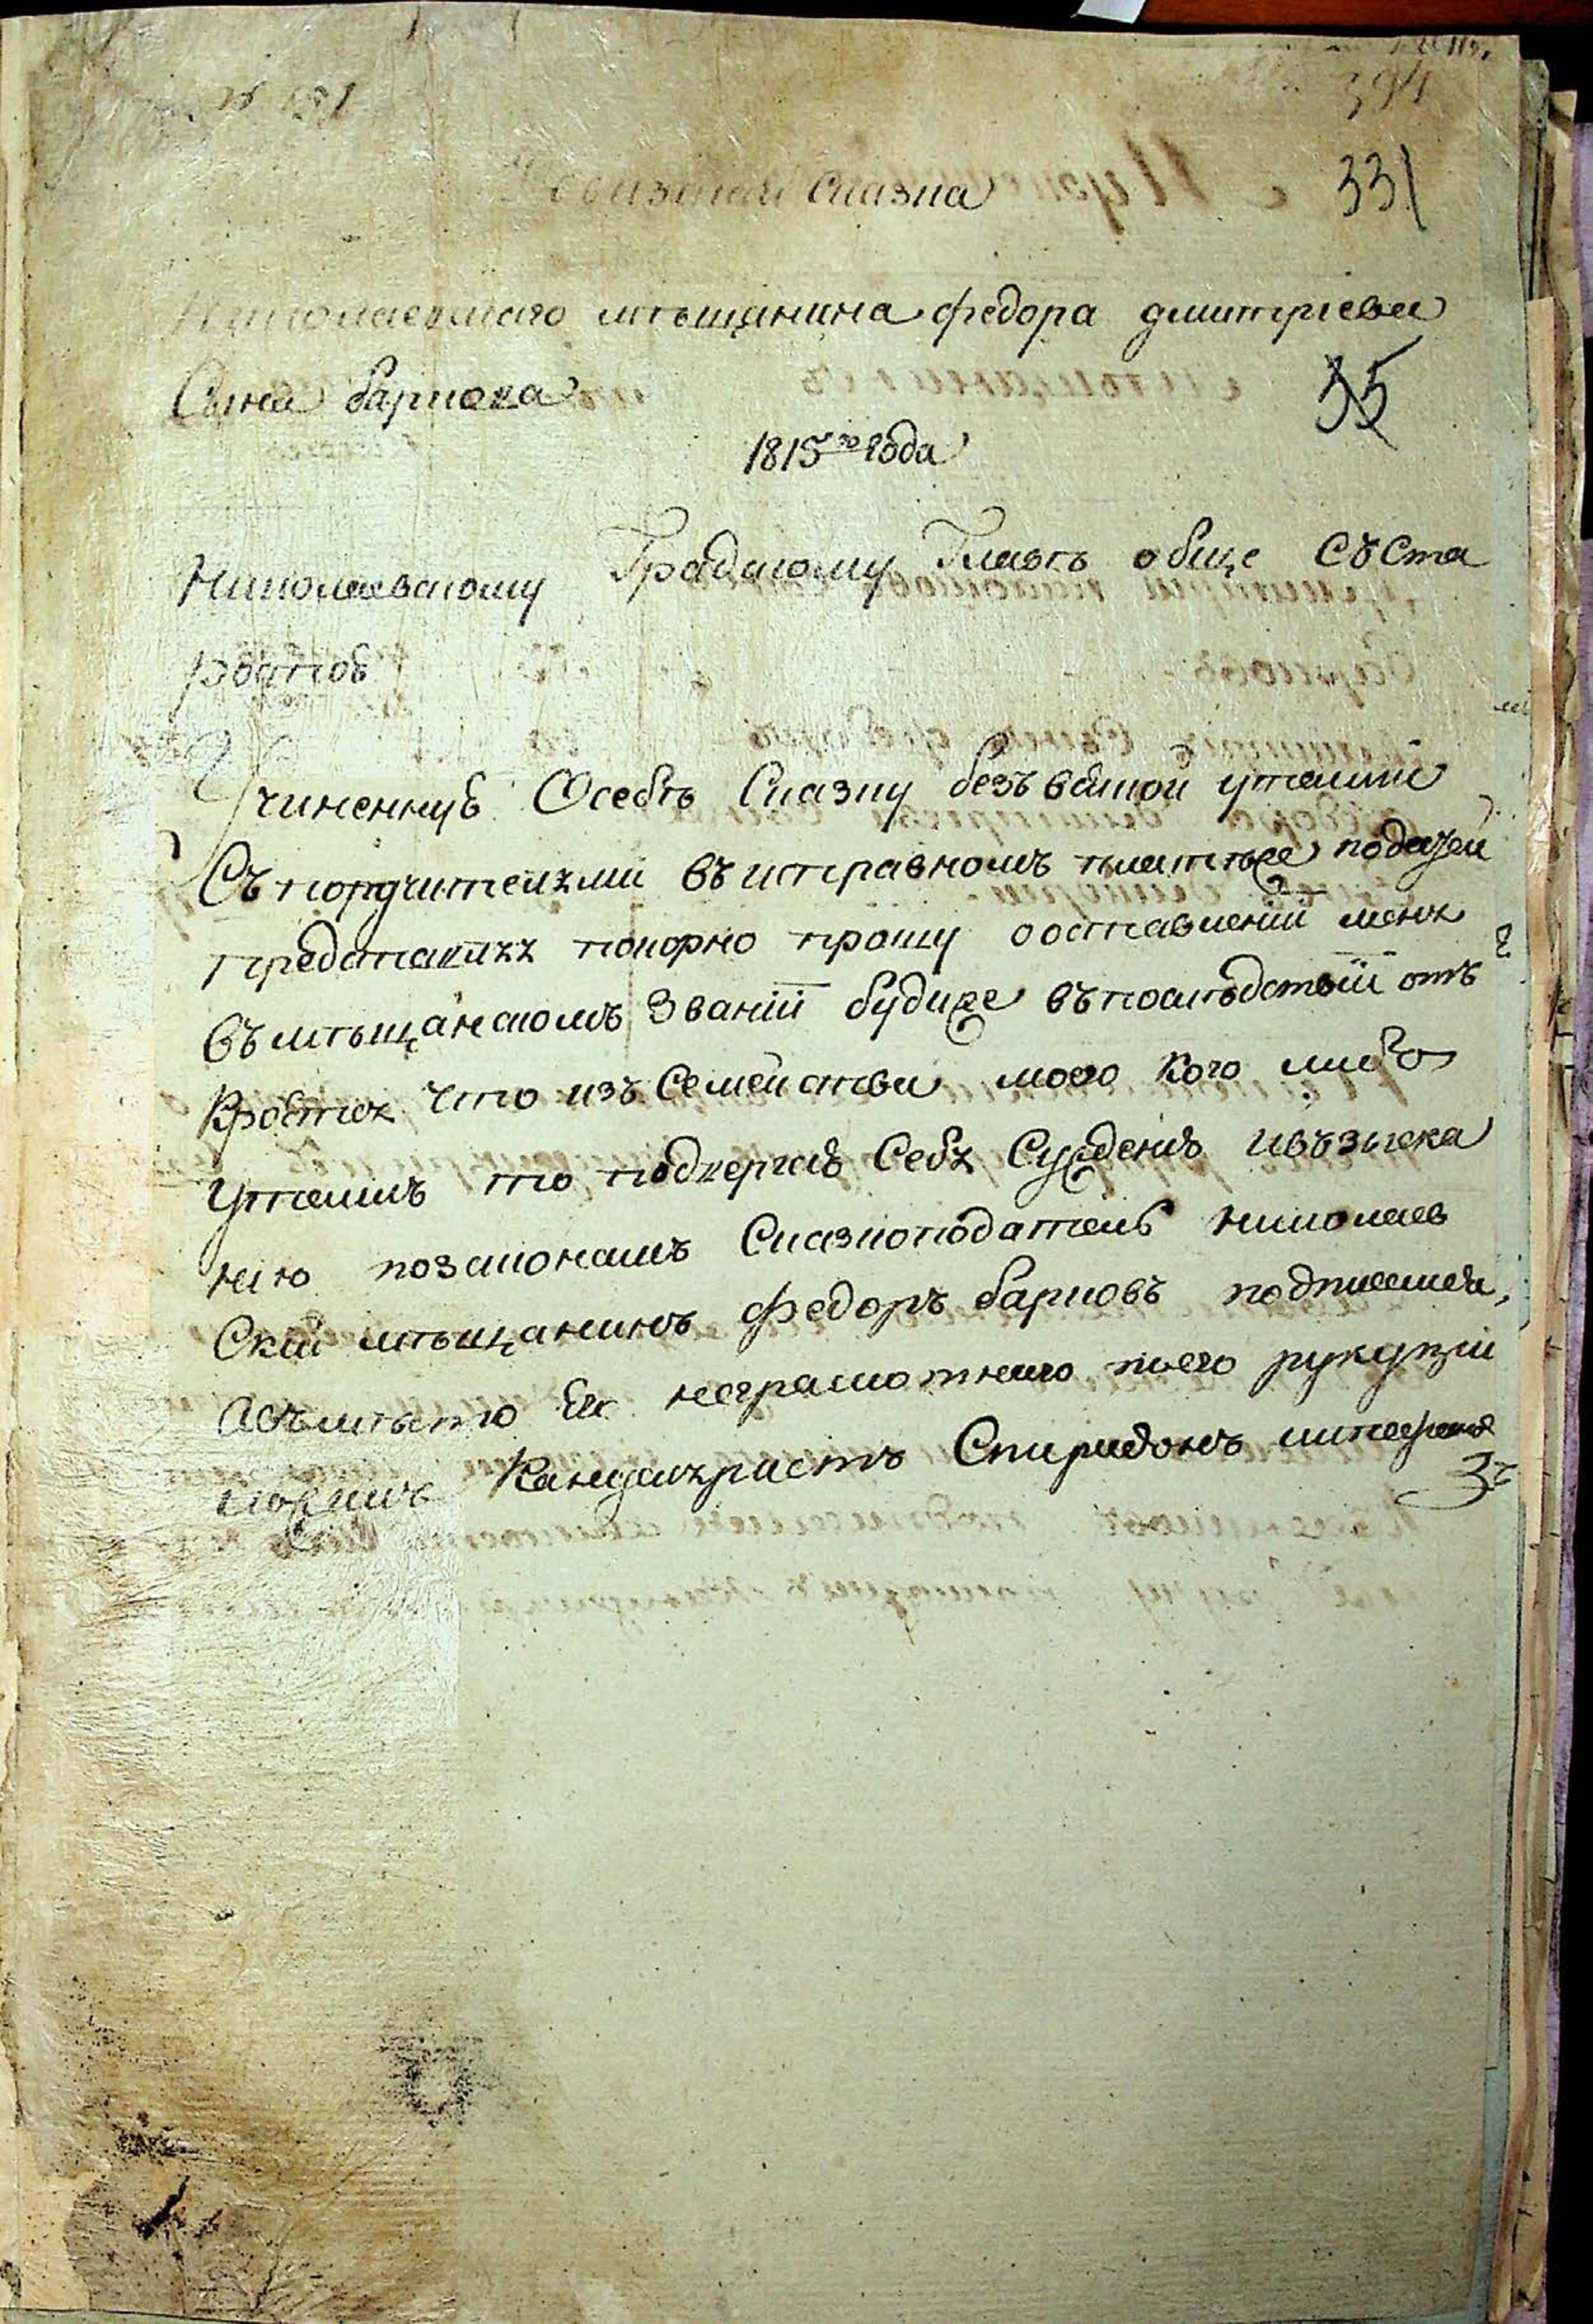 394
331
Ревизская Сказка
Николаевскаго мѣщанина федора дмитріева
Сына баркова
35
1815го года
Николаевскому Градскому Главѣ обще съ Ста
ростою
Учиненную Осебѣ Сказку безъ всякой утайки
Съ поручителями въ исправномъ платеже податей
представляя покорно прошу о оставленіи меня
въ мѣщанскомъ Званіи будиже въ послѣдствіи от
кроется что изъ Семейства моего кого либо
утаилъ то подвергаю Себя Сужденю и взыска
нию по законамъ Сказкоподатель николаев
Скій мѣщанинъ федоръ барковъ подписался,
а въ место Ея неграмотнаго него руку при
ложилъ Канцеляристъ Спиридонъ